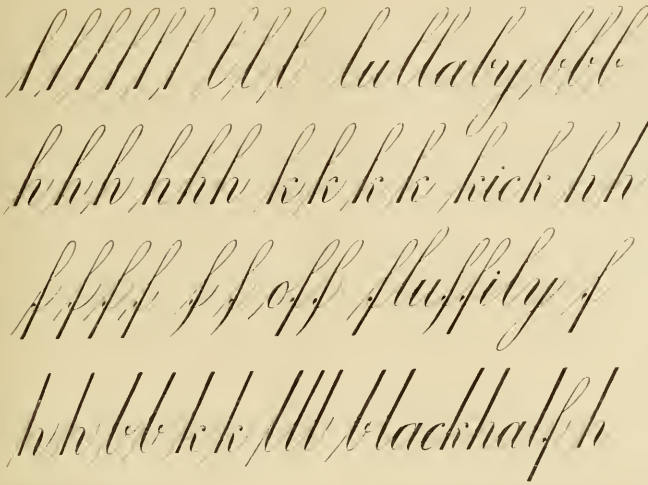 l l l l l l l l l lullaby b b b
h h h h h h k k k k kick h h
f f f f f f off fluffily f
h h b b k k l l l blackhalf h